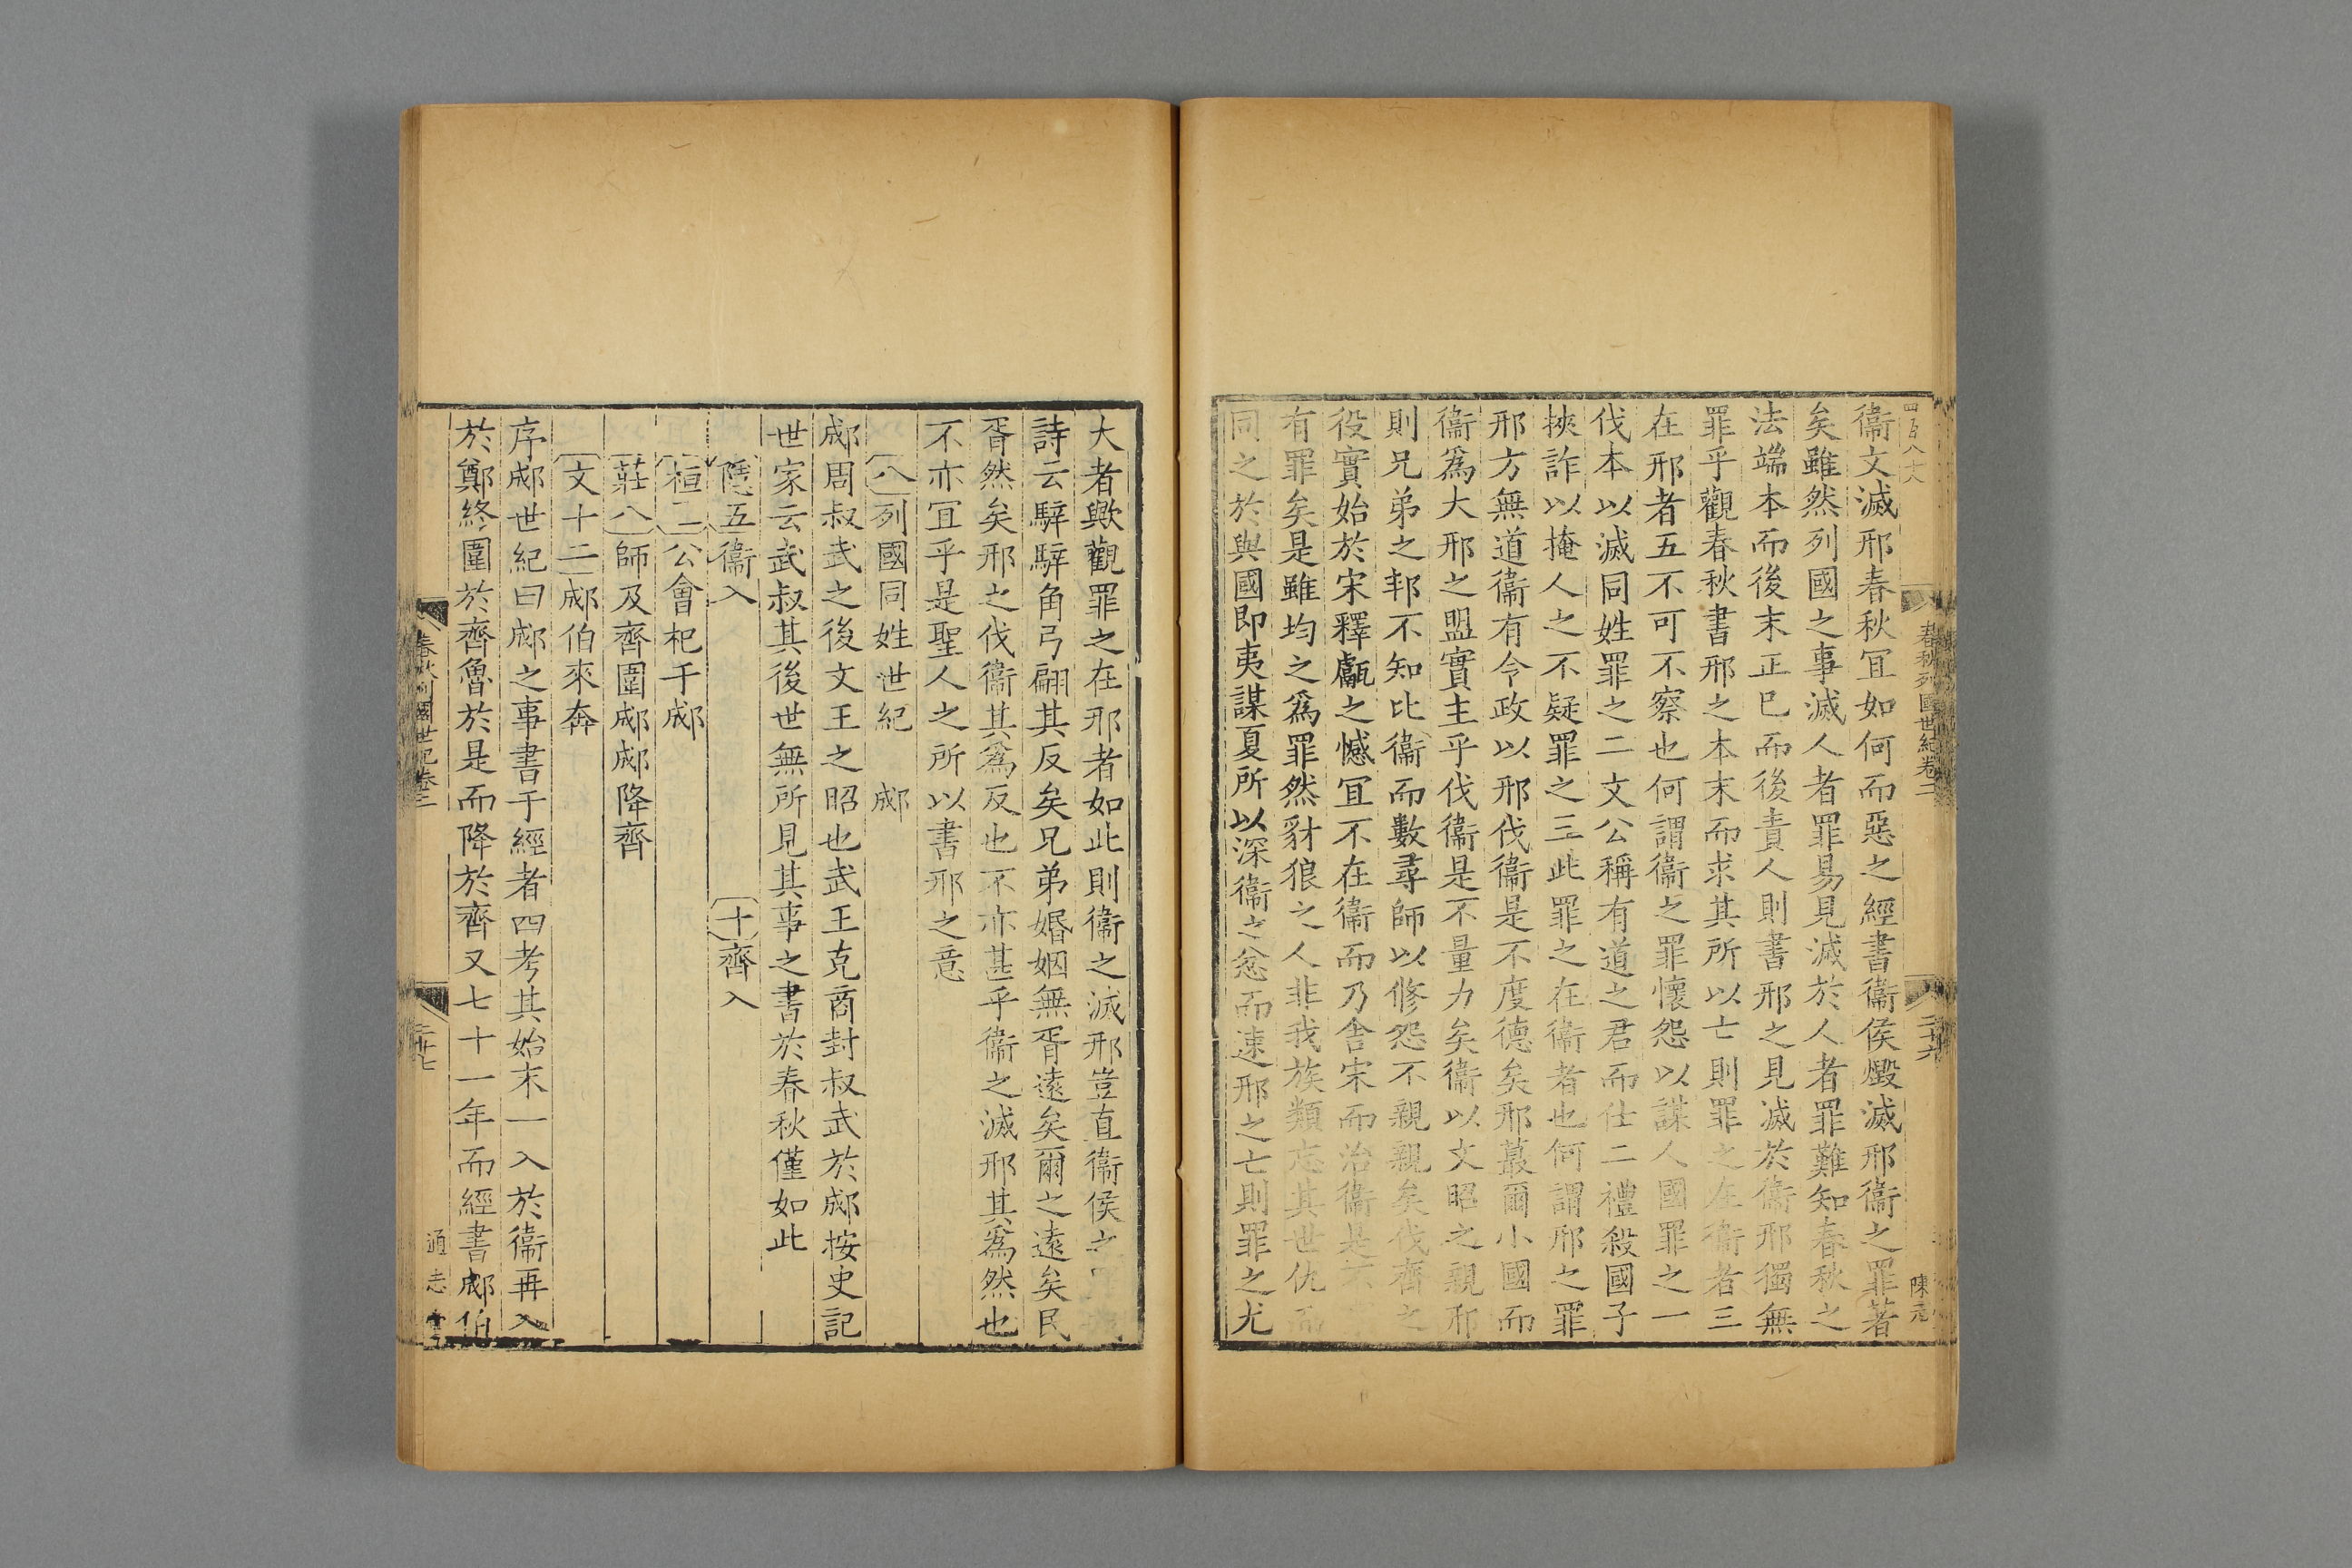 四百八十八
春秋列國世紀卷二
二十六
陳元
衞文滅邢春秋宜如何而惡之經書衞侯燬滅邢衞之罪著
矣雖然列國之事滅人者罪易見滅於人者罪難知春秋之
法端本而後末正已而後責人則書邢之見滅於衞邢獨無
罪乎觀春秋書邢之本末而求其所以亡則罪之在衞者三
在邢者五不可不察也何謂衞之罪懷怨以謀人國罪之一
伐本以滅同姓罪之二文公稱有道之君而仕二禮殺國子
挾詐以掩人之不疑罪之三此罪之在衞者也何謂邢之罪
邢方無道衞有令政以邢伐衞是不度德矣邢蕞爾小國而
衞爲大邢之盟實主乎伐衞是不量力矣衞以文昭之親邢
則兄弟之邦不知比衞而數尋師以修怨不親親矣伐齊之
役實始於宋釋甗之憾宜不在衞而乃舍宋而治衞是
有罪矣是雖均之爲罪然豺狼之人非我族類忘其世仇而
同之於與國即夷謀夏所以深衞之忿而速邢之亡則罪之尤
大者歟觀罪之在邢者如此則衞之滅邢豈直衞侯之
詩云騂騂角弓翩其反矣兄弟婚姻無胥遠矣爾之遠矣民
胥然矣邢之伐衞其爲反也不亦甚乎衞之滅邢其爲然也
不亦宜乎是聖人之所以書邢之意
八列國同姓世紀 郕
郕周叔武之後文王之昭也武王克商封叔武於郕按史記
世家云武叔其後世無所見其事之書於春秋僅如此
隱五衞入 十齊入
桓二公會杞于郕
莊八師及齊圍郕郕降齊
文十二郕伯來奔
序郕世紀曰郕之事書于經者四考其始末一入於衞再入
於鄭終圍於齊魯於是而降於齊又七十一年而經書郕伯
春秋列國世紀卷二
二十七
通志堂